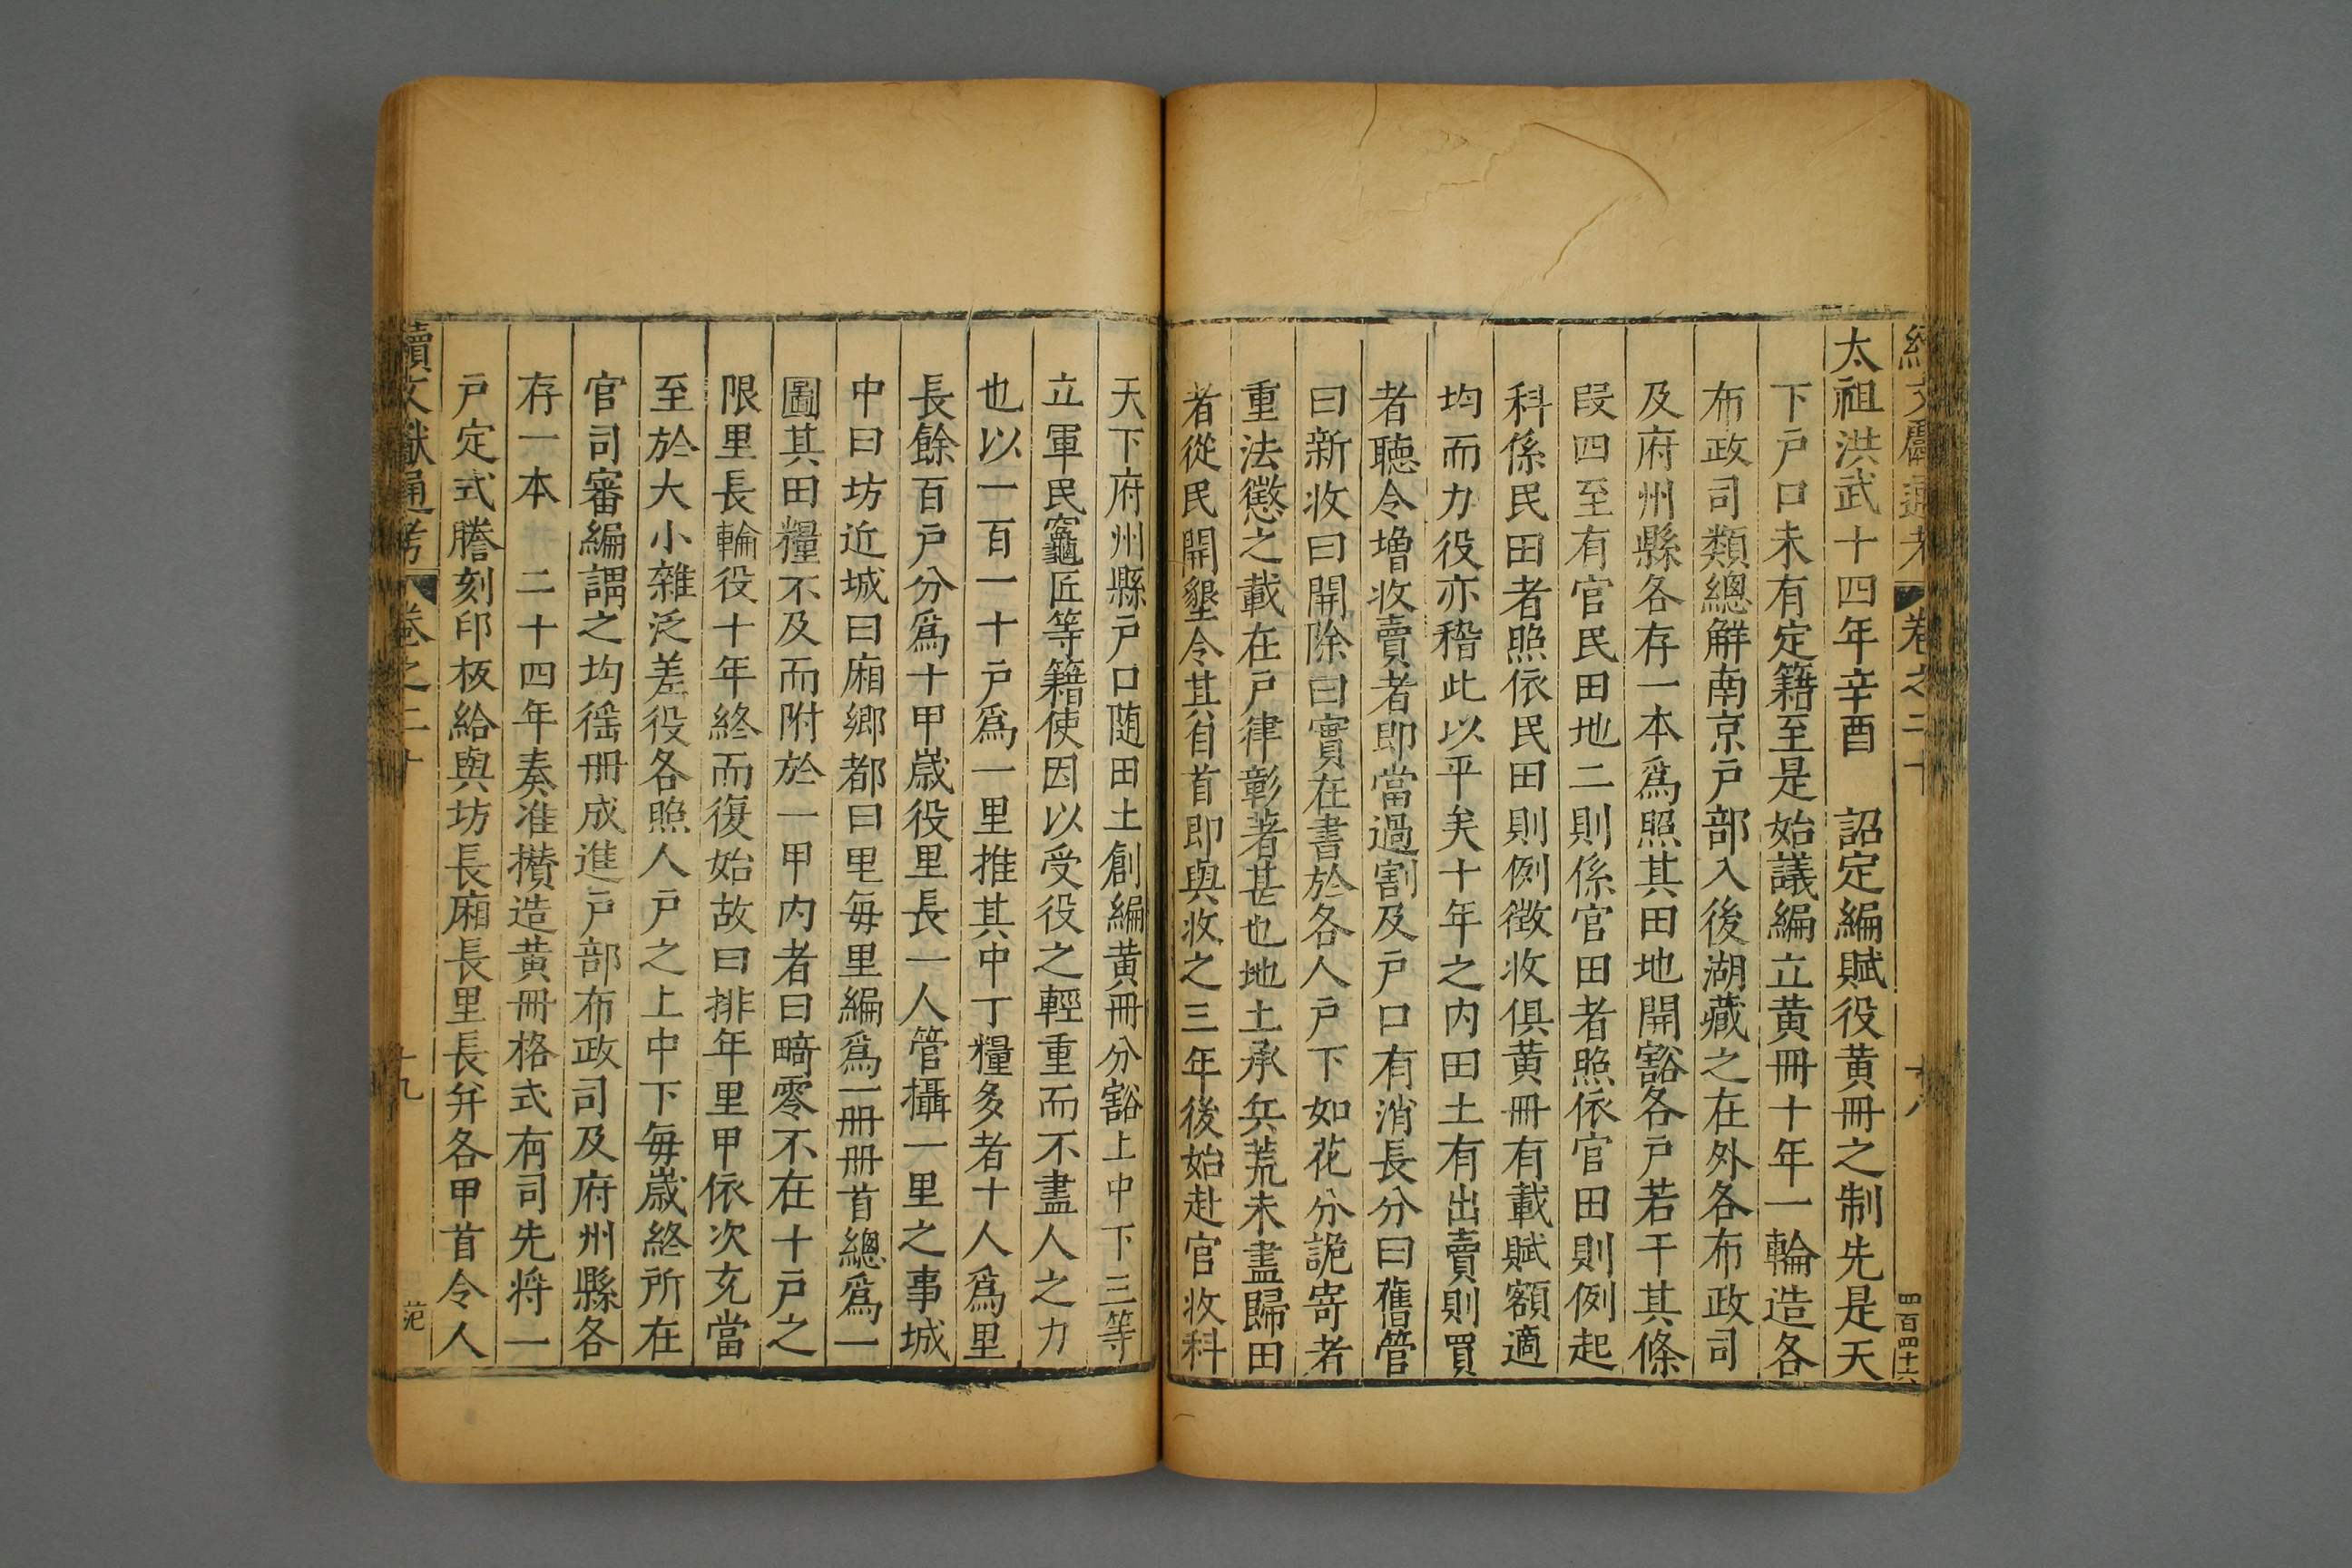 續文獻通考 卷之二十 十八 四百四十六
太祖洪武十四年辛酉 詔定編賦役黄冊之制先是天
下戸口未有定籍至是始議編立黄冊十年一輪造各
布政司類總解南京戸部入後湖藏之在外各布政司
及府州縣各存一本爲照其田地開豁各戸若干其條
段四至有官民田地二則係官田者照依官田則例起
科係民田者照依民田則例徴收俱黄冊有載賦額適
均而力役亦稽此以平矣十年之内田土有出賣則買
者聽令增收賣者即當過割及戸口有消長分曰舊管
曰新收曰開除曰實在書於各人戸下如花分詭寄者
重法懲之載在戸律彰著甚也地土承兵荒未盡歸田
者從民開墾令其自首即與收之三年後始赴官收科
天下府州縣戸口随田土創編黄冊分豁上中下三等
立軍民竈匠等籍使因以受役之輕重而不盡人之力
也以一百一十戸爲一里推其中丁糧多者十人爲里
長餘百戸分爲十甲歲役里長一人管攝一里之事城
中曰坊近城曰廂鄉都曰里每里編爲一冊冊首總爲一
圖其田糧不及而附於一甲内者曰畸零不在十戸之
限里長輪役十年終而復始故曰排年里甲依次充當
至於大小雜泛差役各照人戸之上中下每歲終所在
官司審編謂之均徭冊成進戸部布政司及府州縣各
存一本 二十四年奏准攅造黄冊格式有司先將一
戸定式謄刻印板給與坊長廂長里長并各甲首令人
續文獻通考 卷之二十 十九 范